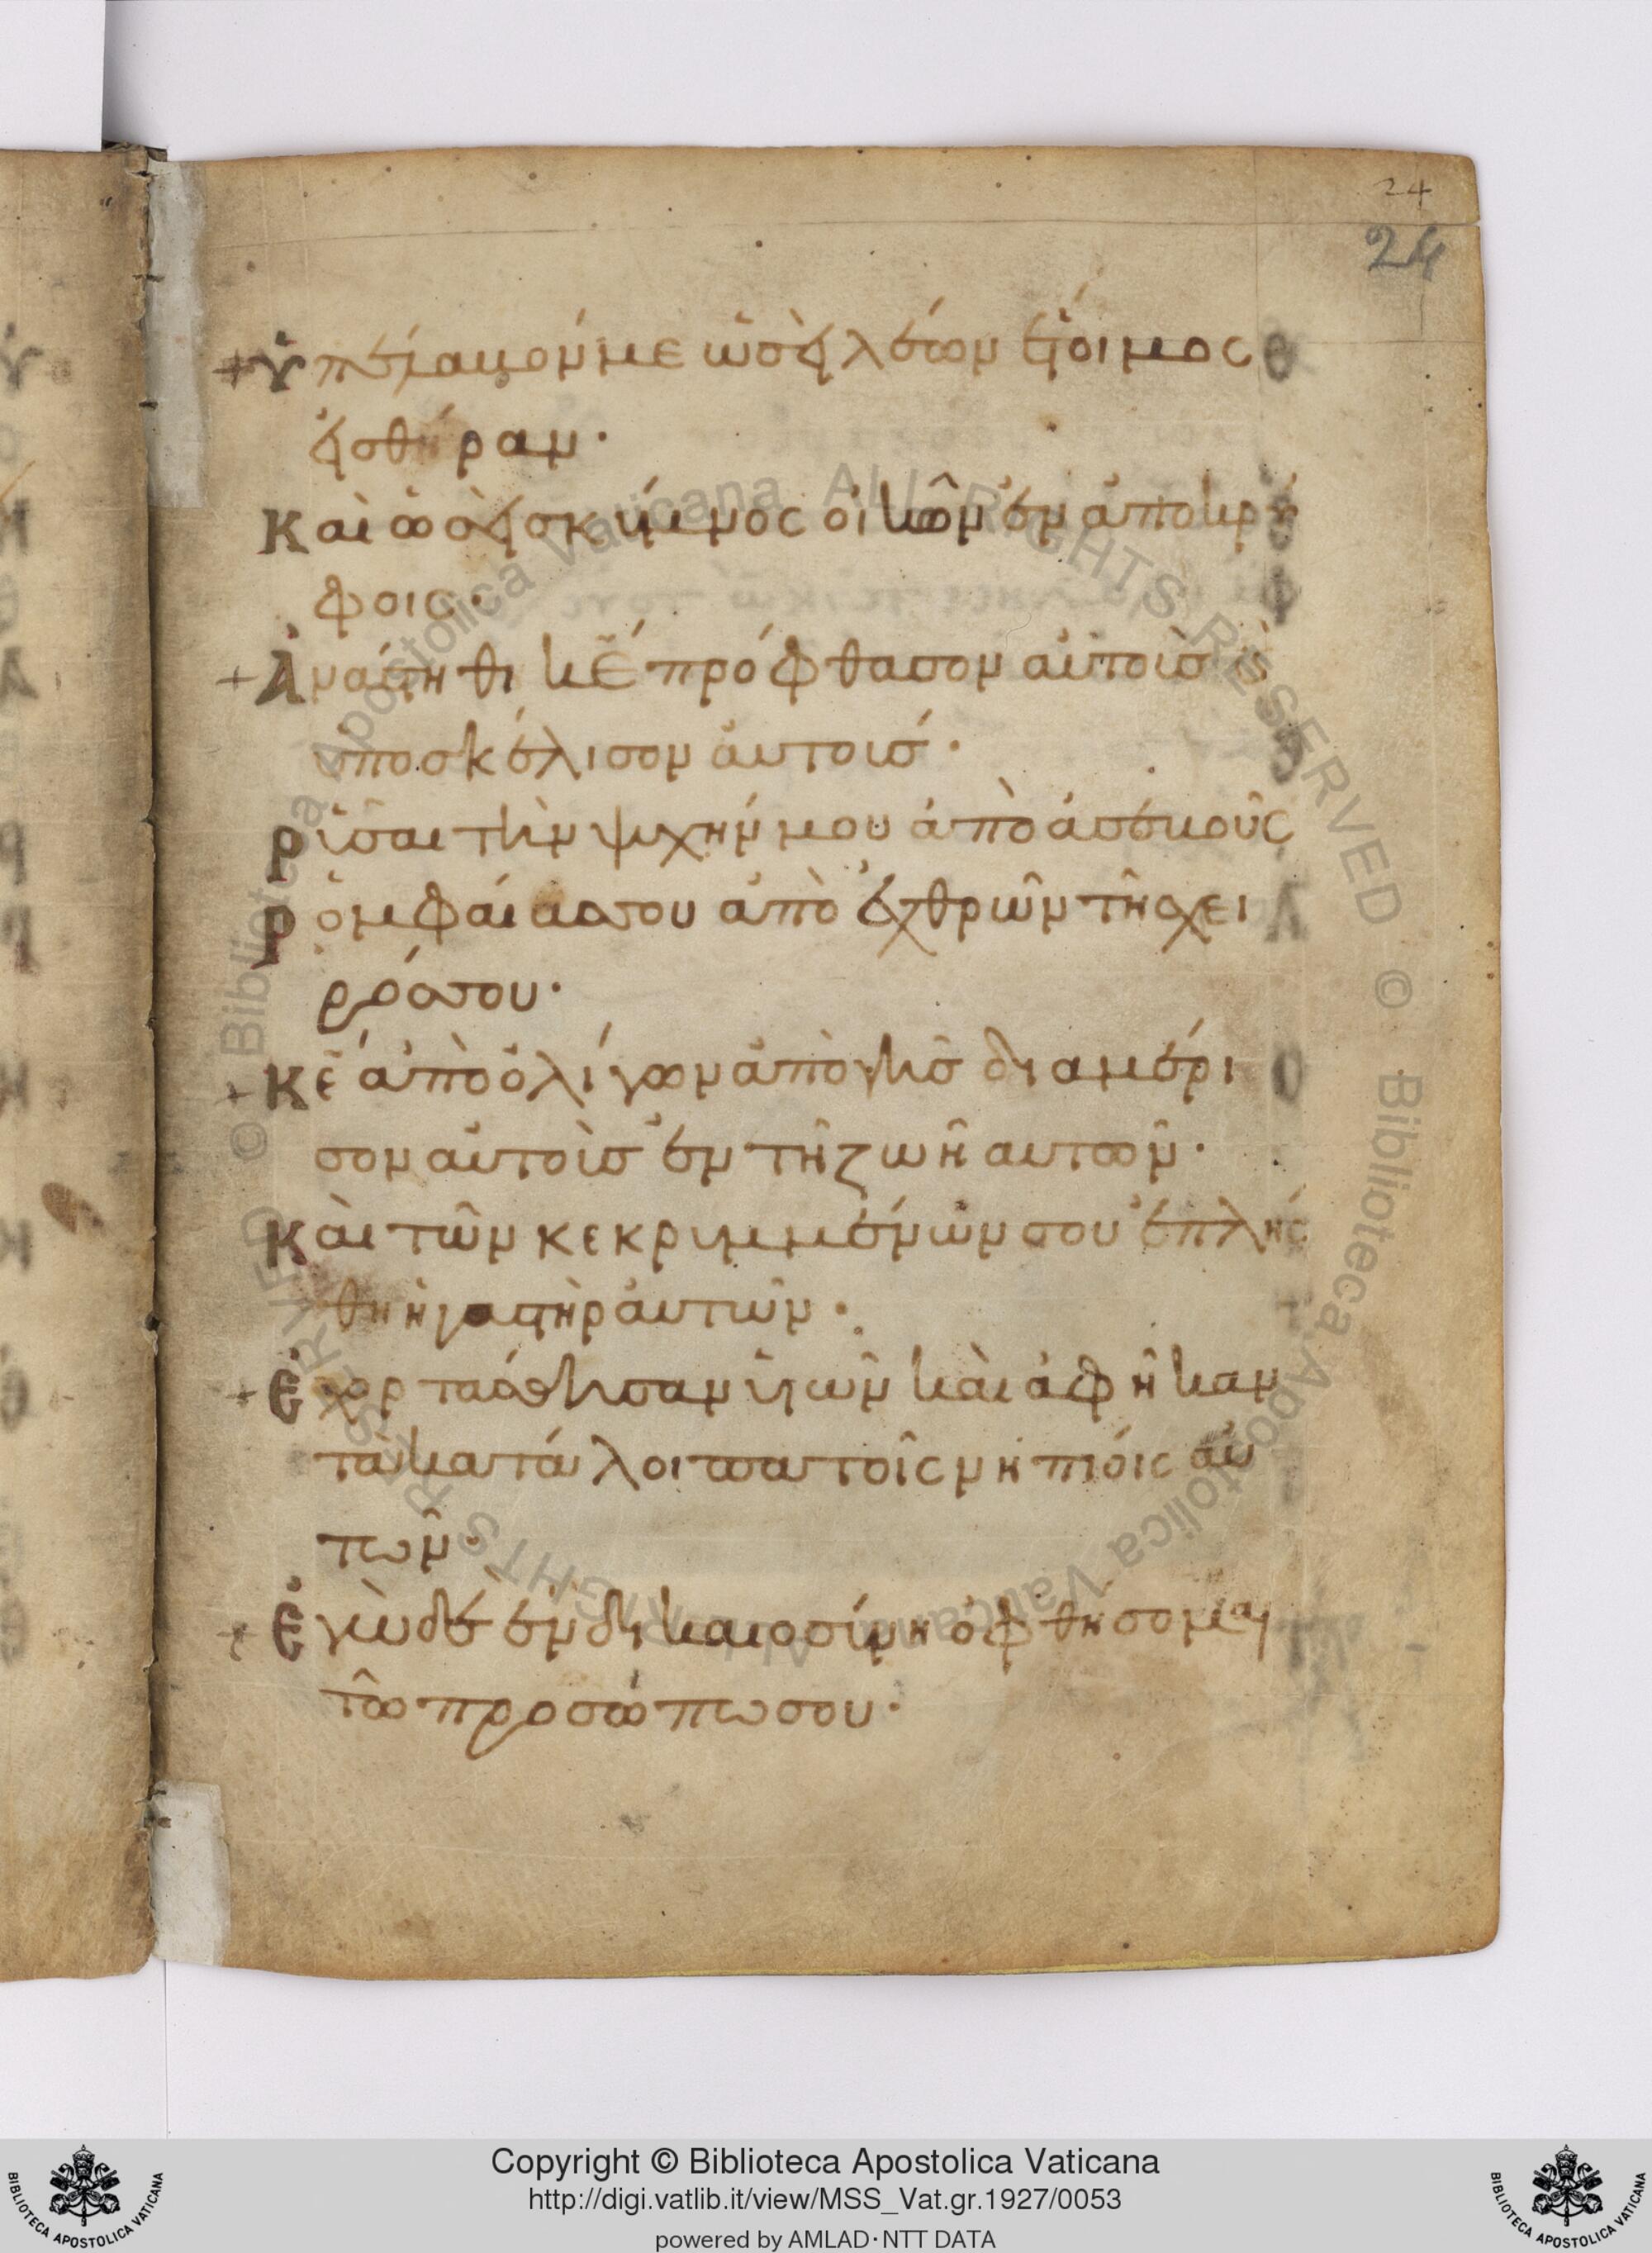 24
24
+ Ὑπέλαβόν με ὡσεὶ λέων ἕτοιμος
εἰς θήραν·
Καὶ ὡσεὶ σκύμνος οἰκῶν ἐν ἀποκρύ
φοις·
+ Ἀνάστηθι κ̅ε̅ πρόφθασον αὐτοὺς κ(αὶ)
ὑποσκέλισον αὐτούς·
Ῥῦσαι τὴν ψυχήν μου ἀπὸ ἀσεβοῦς
ῥομφαίαν σου ἀπὸ ἐχθρῶν τῆς χει
ρός σου·
+ Κ̅ε̅ ἀπὸ ὀλίγων ἀπὸ γῆς διαμέρι
σον αὐτοὺς ἐν τῇ ζωῇ αυτῶν·
Καὶ τῶν κεκρυμμένων σου ἐπλήσ
θη ἡ γαστὴρ αὐτῶν·
+ Ἐχορτάσθησαν ὑιῶν καὶ ἀφῆκαν
τὰ κατάλοιπα τοῖς νηπίοις αὐ
τῶν·
+ Ἐγὼ δὲ ἐν δικαιοσύνη ὀφθήσομαι
τῶ προσώπω σου·
© Biblioteca Apostolica Vaticana ALL RIGHTS RESERVED © Biblioteca Apostolica Vaticana ALL RIGHTS RESERVED
Copyright © Biblioteca Apostolica Vaticana
http://digi.vatlib.it/view/MSS_Vat.gr.1927/0053
powered by AMLAD·NTT DATA
BIBLIOTECA APOSTOLICA VATICANA
BIBLIOTECA APOSTOLICA VATICANA